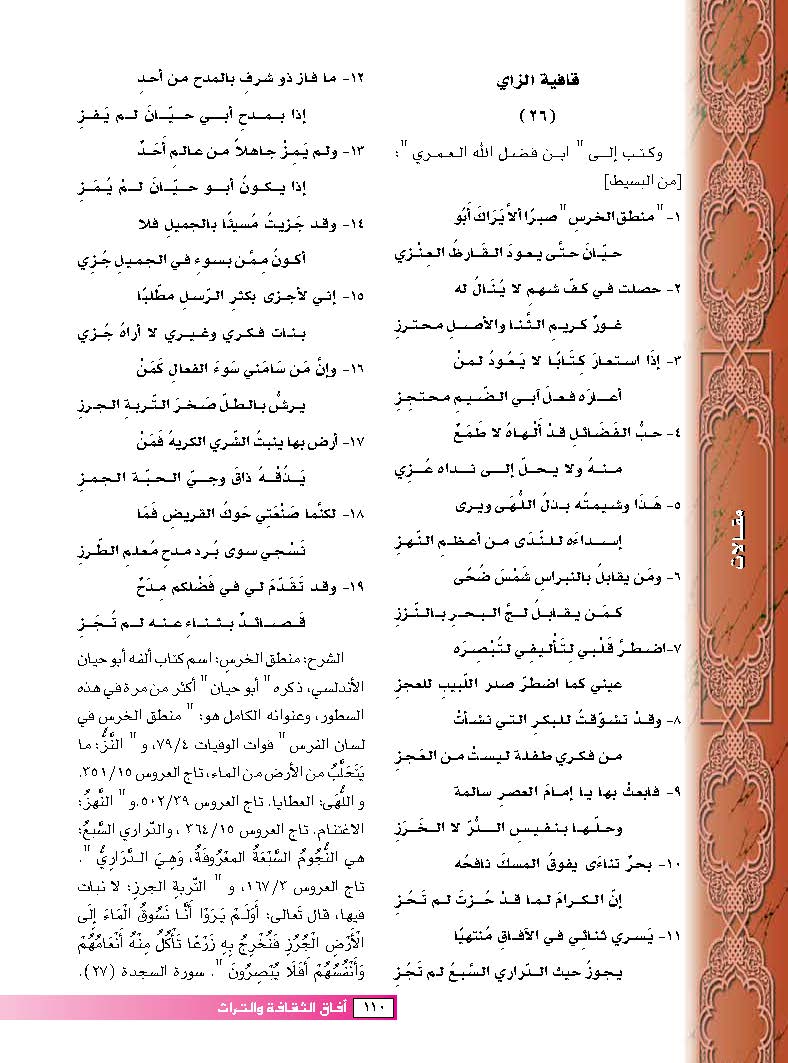 قافية الزاي
(٢٦)
وكتب إلى " ابن فضل الله العمري ":
[من البسيط]
١- "منطق الخرس" صبرًا ألاَّ يَرَاكَ أَبُو
حيّـانَ حتَّى يعودَ القَـارظُ العِنْزي
٢- حصلت في كفّ شهمٍ لا يُنَـالُ له
غـورٌ كريـمِ الثَّنـا والأصـلِ محتـرزِ
٣- إذَا استعـارَ كِتَـابًا لا يَـعُـودُ لمنْ
أعـارَه فعـلَ آبـي الضّـيمِ محتجـزِ
٤- حبُّ الفَضَـائلِ قـدْ أَلْـهـاهُ لا طَـمَـعٌ
مـنـهُ ولا يـحـلّ إلـى نـداه عُـزي
٥- هَـذَا وشيمتُه بـذلُ اللُّهَـى ويرى
إسـداءَه للـنّدى من أعظـم النّهـزِ
٦- ومَن يقابلُ بالنبراسِ شَمْسَ ضُحًى
كـمَـن يـقـابـل لـجَّ الـبـحـرِ بـالـنّززِ
٧-اضطرَّ قَلْبي لِتَأليفي لتُبْصِرَه
عيني كما اضطرّ صدر اللّبيبِ للعجزِ
٨- وقـدْ تشـوّقتُ للبكرِ التـي نشـأتْ
مـن فكـري طفلـة ليسـتْ من العَجـزِ
٩- فابعثْ بهـا يـا إمـامَ العصـرِ سالمـة
وحلّـهـا بـنـفـيـسِ الــدُّرّ لا الـخَـرَزِ
١٠- بحرٌ ثناءَى يفوقُ المسكَ نافحُه
إنّ الكـرامَ لمـا قـدْ حُـزتَ لم تَحُـزِ
١١- يَسري ثنائِي في الآفاقِ مُنتهيًا
يجوزُ حيث الـدّراري السَّبـعُ لم تَجُـزِ
١٢- ما فاز ذو شرفٍ بالمدحِ من أحدٍ
إذا بـمـدحِ أبـي حـيّـانَ لـم يَـفـزِ
١٣- ولم يَمِزْ جاهلاً مـن عالمٍ أَحَـدٌ
إذا يـكـونُ أبـو حـيّـانَ لـمْ يُـمَـزِ
١٤- وقد جَزيتُ مُسيئًا بالجميلِ فلا
أكـونُ مِمَّن بسوءٍ في الجميلِ جُزي
١٥- إني لأجزى بكثرِ الرّسلِ مطّلبًا
بنـات فكـري وغيـري لا أراهُ جُـزي
١٦- وإنَّ مَن سَامَني سَوءَ الفعالِ كَمَنْ
يـرشُّ بالطـلّ صَخـرَ التّربـةِ الجـرزِ
١٧- أرض بها ينبتُ الشّري الكريهُ فَمَنْ
يَـذُقْـهُ ذاقَ وجـيَّ الـحيّـة الـجمـزِ
١٨- لكنَّما صَنْعَتي حَوكُ القريضِ فَمَا
نَسْـجي سوى بُـرد مـدحٍ مُعلمِ الطّـرزِ
١٩- وقد تَقَدّمَ لي في فَضْلكم مِدَحٌ
قـصـائـدٌ بـثـنـاءٍ عـنـه لـم تُـجَـزِ
الشرح: منطق الخرس: اسم كتاب ألفه أبو حيان
الأندلسي، ذكره "أبو حيان" أكثر من مرة في هذه
السطور، وعنوانه الكامل هو: " منطق الخرس في
لسان الفرس " فوات الوفيات ٧٩/٤، و " النَّزُّ: ما
يَتَحَلَّبُ من الأرض من الماء، تاج العروس ٣٥١/١٥.
و اللُّهَى: العطايا. تاج العروس ٥٠٢/٣٩.و " النَّهزُ:
الاغتنام. تاج العروس ٣٦٤/١٥ ، والدّراري السَّبعُ:
هي النُّجُومُ السَّبْعَةُ المعْروفَةُ، وَهِيَ الـدَّرَارِيُّ ".
تاج العروس ١٦٧/٣، و " التّربةِ الجرزِ: لا نبات
فيها، قال تعالى: أَوَلَـمْ يَـرَوْا أَنَّـا نَسُوقُ الْمَاءَ إِلَى
الْأَرْضِ الْجُرُزِ فَنُخْرِجُ بِهِ زَرْعًا تَأْكُلُ مِنْهُ أَنْعَامُهُمْ
وَأَنْفُسُهُمْ أَفَلَا يُبْصِرُونَ ". سورة السجدة (٢٧).
مقـالات
١١٠ آفاق الثقافة والتراث